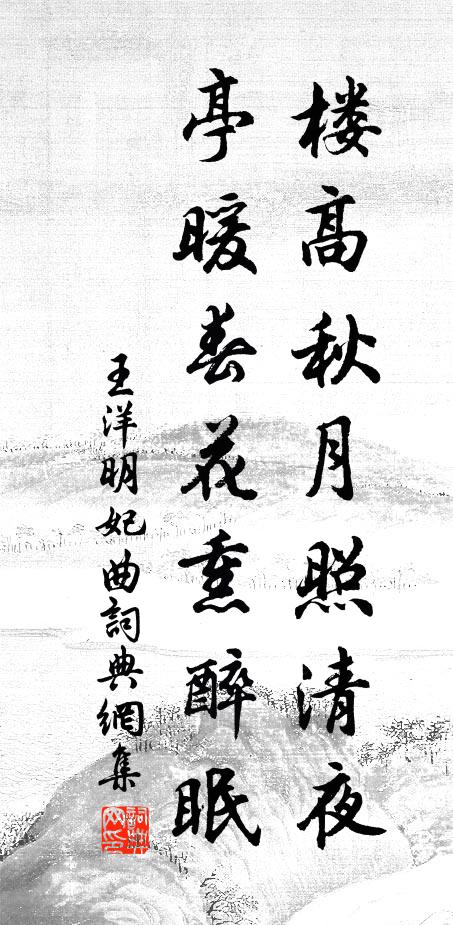 楼高秋月照清夜
亭暖春花熏醉眠
王洋明妃曲詞典網集